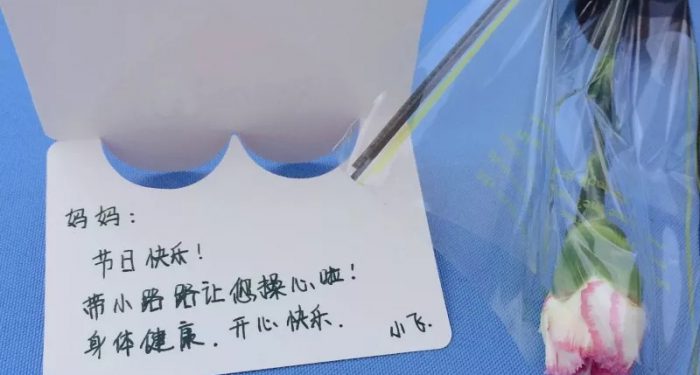 妈妈：
节日快乐！
带小路路让您操心啦！
身体健康．开心快乐．
小飞．